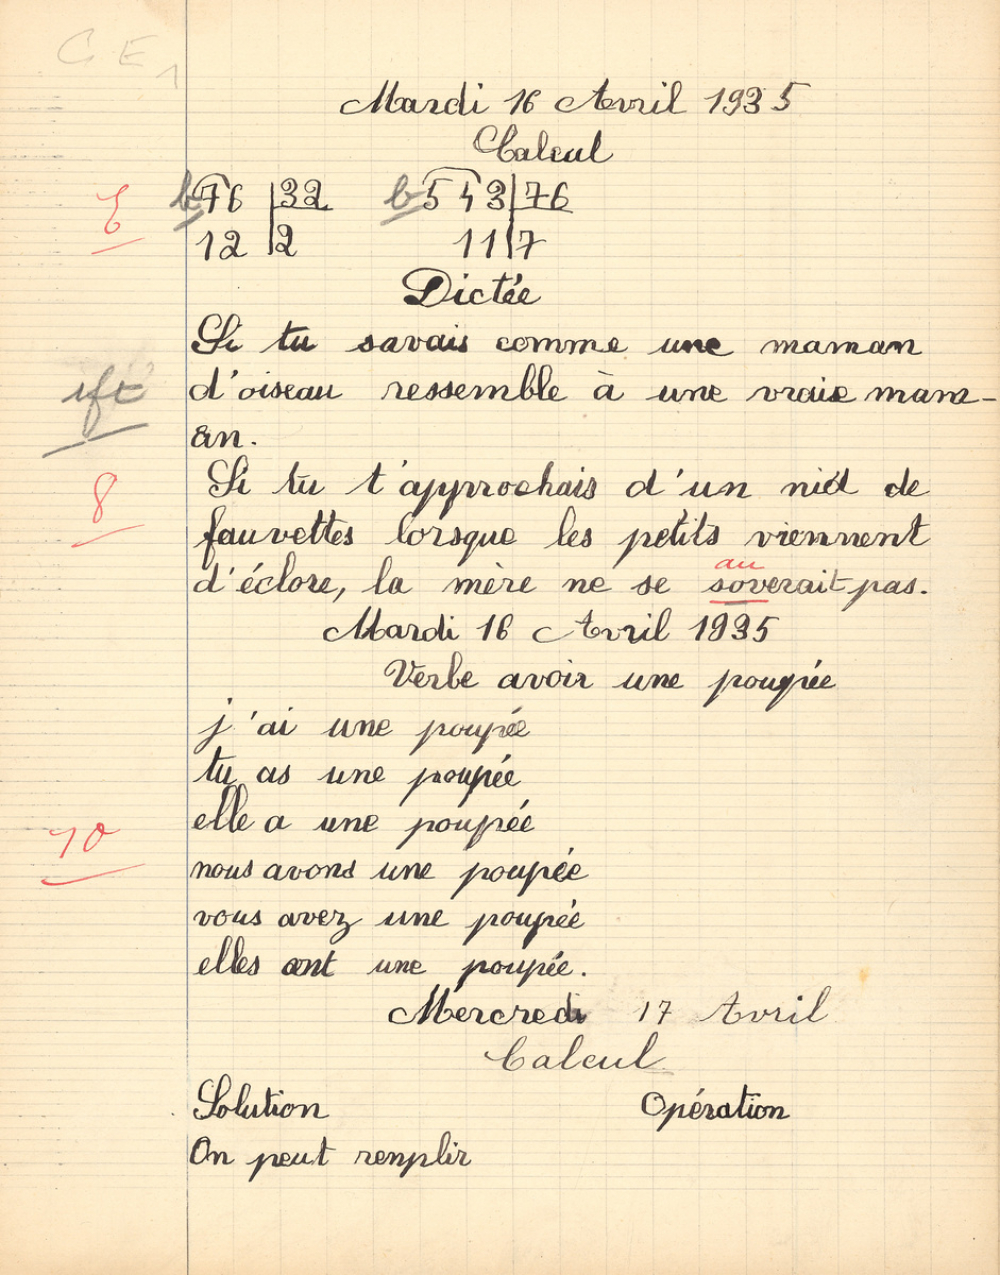 CE1
Mardi 16 Avril 1935
Calcul
b 76 32 b 543 76
12 2 11 7
Dictée
Si tu savais comme une maman
d'oiseau ressemble à une vraie mam-
an.
8
Si tu t'approchais d'un nid de
fauvettes lorsque les petits viennent
au
d'éclore, la mère ne se soverait pas.
Mardi 16 Avril 1935
Verbe avoir une poupée
j'ai une poupée
tu as une poupée
elle a une poupée
10
nous avons une poupée
vous avez une poupée
elles ont une poupée.
Mercredi 17 Avril
Calcul
Solution Opération
On peut remplir